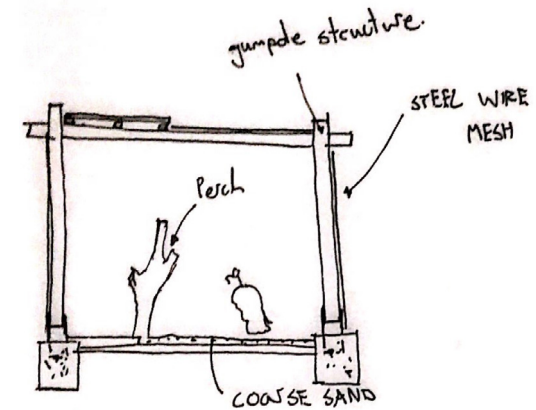 gumpole structure.
STEEL WIRE
MESH
Perch
COARSE SAND